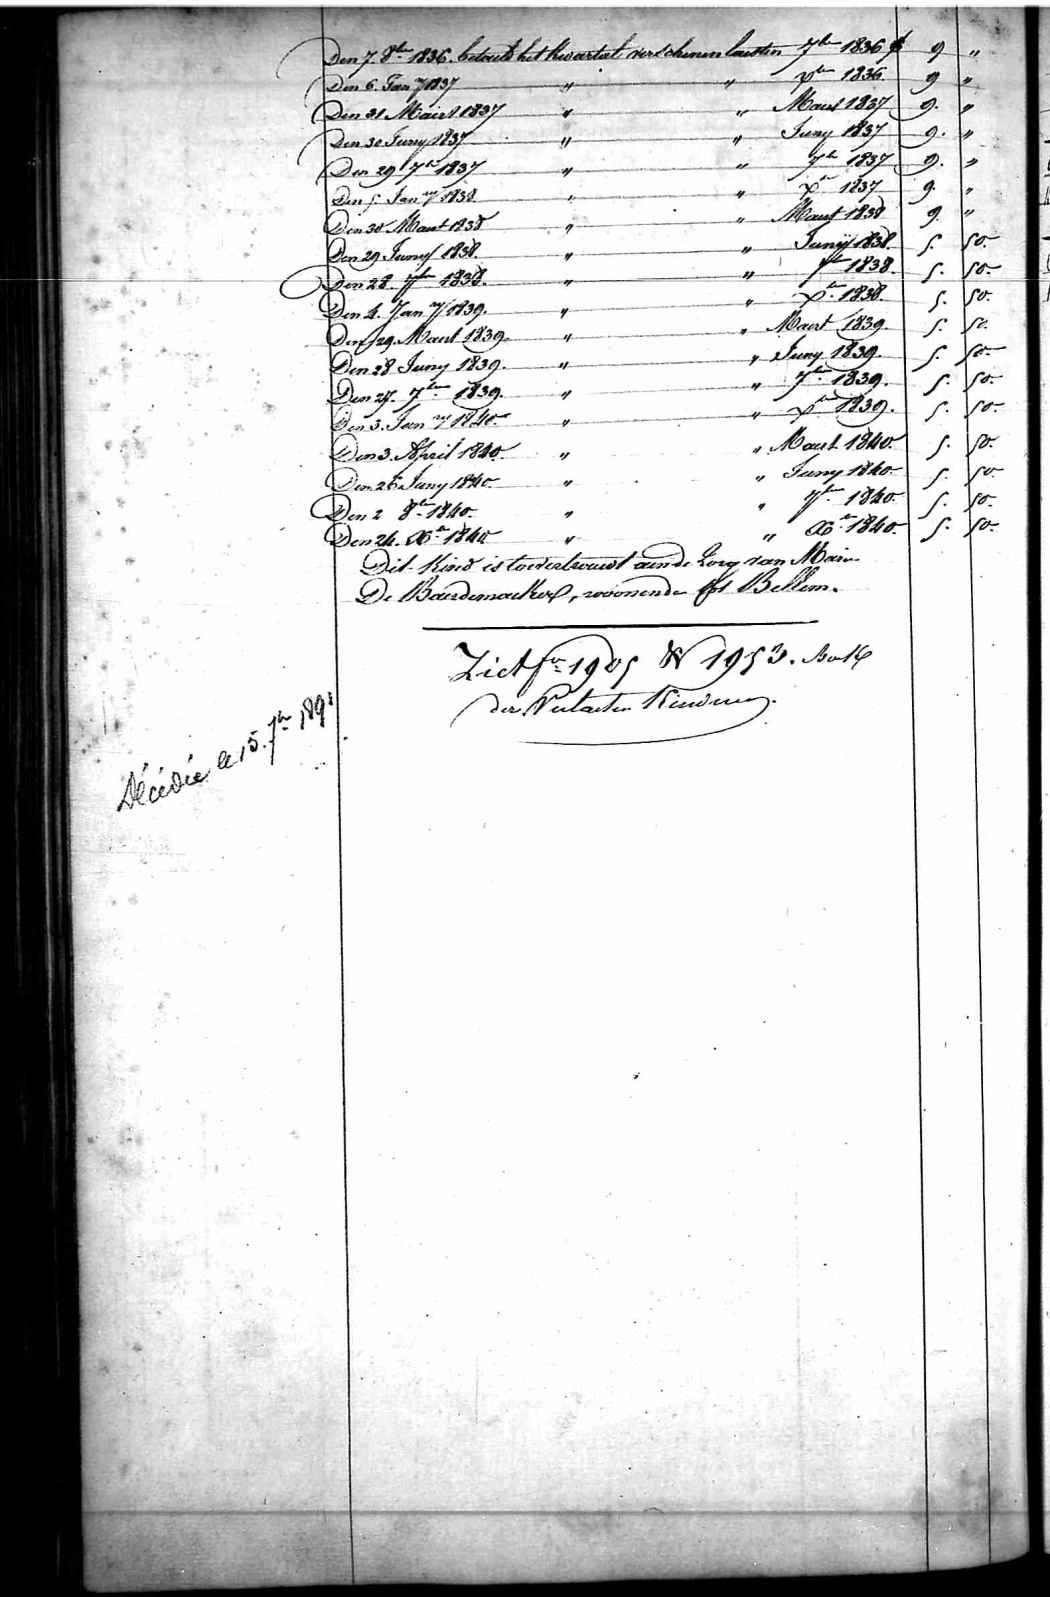 Den 7. 8bre 1836. betaelt het kwartael verschenen laesten 7bre 1836 f 9 "
Den 6. Jan ry 1837 " " xbre 1836. 9 "
Den 31 Maert 1837 " " Maert 1837 9. "
Den 30 Juny 1837 " " Juny 1837 9. "
Den 29 7bre 1837 " " 7bre 1837 9. "
Den 5. Jan ry 1838. " " xbre 1837 9. "
Den 30 Maert 1838 " " Maert 1838 9. "
Den 29 Juny 1838. " " Juny 1838. 5. 50.
Den 28. 7bre 1838. " " 7bre 1838. 5. 50.
Den 4. Jan ry 1839. " " xbre 1838. 5. 50.
Den 29. Maert 1839. " " Maert 1839. 5. 50.
Den 28 Juny 1839. " " Juny 1839. 5. 50.
Den 27. 7bre 1839. " " 7bre 1839. 5. 50.
Den 3. Jan ry 1840. " " xbre 1839. 5. 50.
Den 3. April 1840. " " Maert 1840. 5. 50.
Den 26 Juny 1840. " " Juny 1840. 5. 50.
Den 2 8bre 1840. " " 7bre 1840. 5. 50.
Den 24. Xbre 1840 " " Xbre 1840. 5. 50.
Dit Kind is toevertrouwt aen de Zorg van Marie
De Baerdemaeker, woonende tot Bellem.
Ziet fo 1905 No 1953. Boek
der Verlaeten Kinderen.
Décédée le 15. 7bre 189